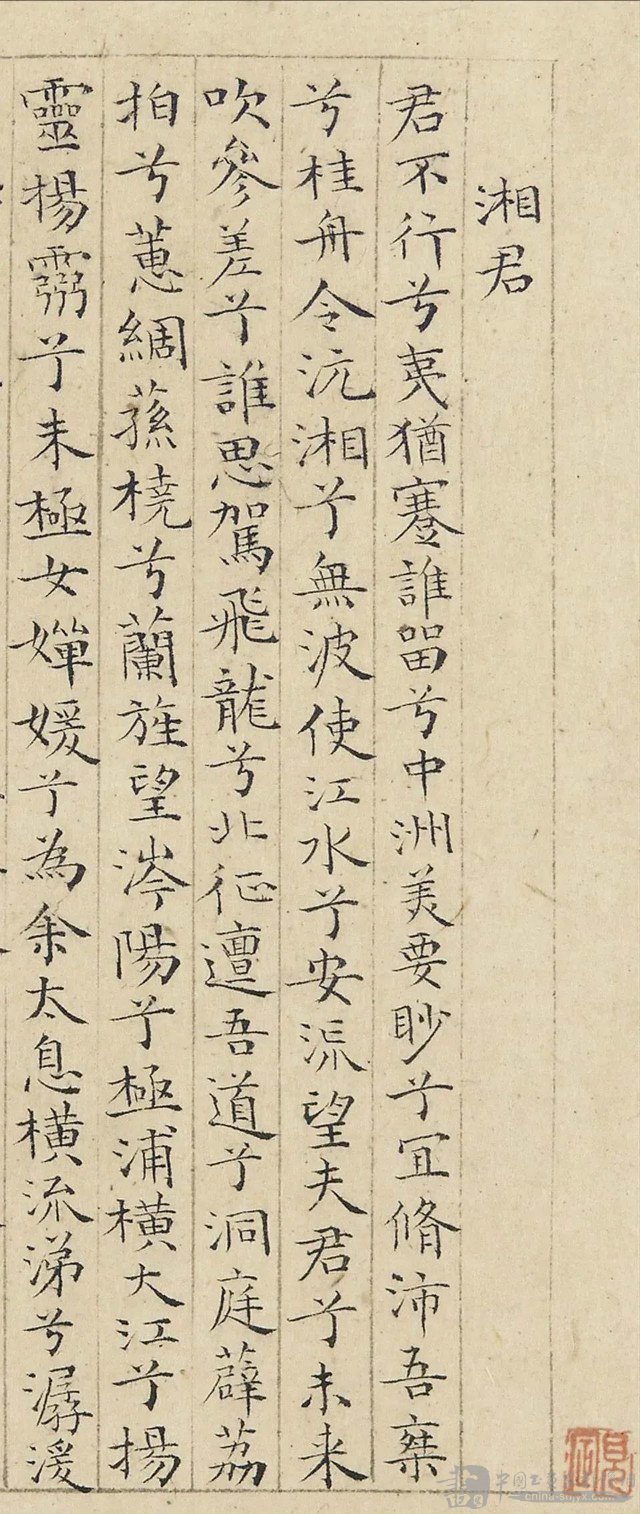 湘君
君不行兮夷猶蹇誰留兮中洲美要眇兮冝脩沛吾椉
兮桂舟令沅湘兮無波使江水兮安流望夫君兮未来
吹參差兮誰思駕飛龍兮北征邅吾道兮洞庭薜荔
拍兮蕙綢蓀橈兮蘭旌望涔陽兮極浦橫大江兮揚
靈楊靈兮未極女嬋媛兮為余太息橫流涕兮潺湲
china-shjyx.com